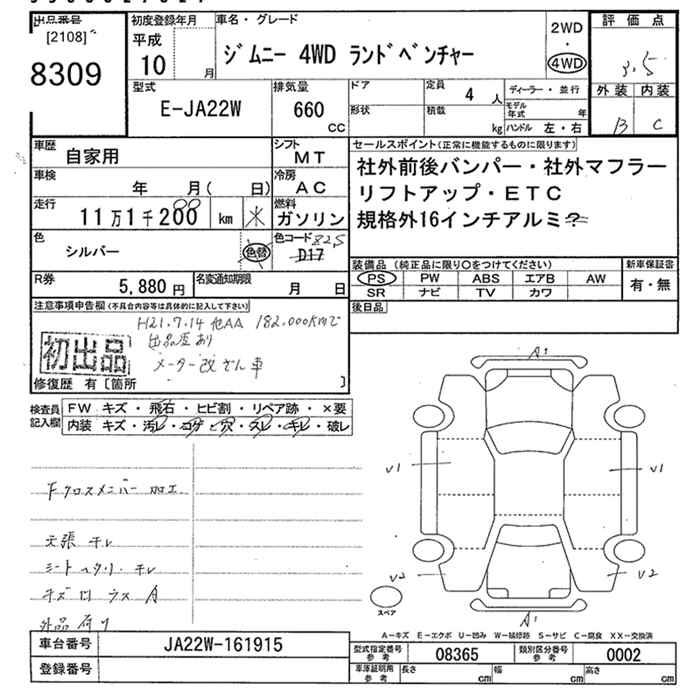 出品番号
[2108]
8309
初度登録年月
平成
10 月
車名・グレード
ジムニー 4WD ランドベンチャー
2WD
・
4WD
評価点
3.5
型式
E-JA22W
排気量
660
CC
ドア
形状
定員
4 人
積載
kg
ディーラー・並行
モデル年式 年
ハンドル 左・右
外装 内装
B C
車歴
自家用
シフト
MT
車検
年 月( 日)
冷房
AC
走行
11万1千200 km
燃料
ガソリン
色
シルバー
色替
色コード 825
D17
R券
5,880円
名変通知期限
月 日
セールスポイント(正常に機能するものに限ります)
社外前後バンパー・社外マフラー
リフトアップ・ETC
規格外16インチアルミ
装備品 (純正品に限り○をつけてください)
PS PW ABS エアB AW
SR ナビ TV カワ
新車保証書
有・無
後日品
注意事項申告欄(不具合内容等は具体的に記入して下さい)
H21.7.14 他AA 182,000kmで
出品歴あり
メーター改ざん車
初出品
修復歴 有[箇所 ]
検査員記入欄
FW キズ・飛石・ヒビ割・リペア跡・×要
内装 キズ・汚レ・コゲ・穴・スレ・キレ・破レ
Fクロスメンバー加工
天張 キレ
シート ヘタリ・キレ
キズ凹 ラス A
外品 有り
A1
V1
V1
V2
V2
A1
スペア
A-キズ E-エクボ U-凹み W-補修跡 S-サビ C-腐食 XX-交換済
車台番号
JA22W-161915
登録番号
型式指定番号 参考
08365
類別区分番号 参考
0002
車庫証明用 参考
長さ cm
幅 cm
高さ cm